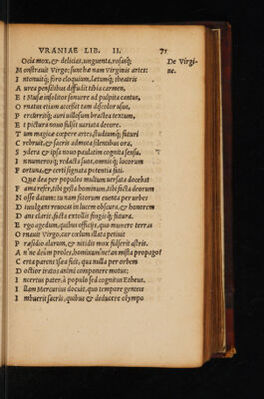 VRANIAE LIB. II. 71
Ocia mox, & delicias, unguenta, rosasq;
De Virgi
ne.
Monstrauit Virgo; sunt hæ nam uirginis artes:
Intonuitq; foro eloquium, lætumq; theatris
Aurea pensilibus diffulsit tibia carmen,
Et Musæ insolitor sonuere ad pulpita cantus,
Ornatus etiam accessit tam discolor usus,
Et picturato nouus fulsit uariata decore.
Tum magicæ coepere artes, studiumq; futuri
Crebruit, & sacris admota silentibus ora,
Sydera & ipsa nouo paulatim cognita sensu,
Innumerosq; redacta sunt, omnisq; locorum
Fortuna, & certi signata potentia fati.
Quæ dea per populos multum uersata docebat
Fama refert, tibi gesta hominum, tibi ficta deorum
Nosse datum: tu nam fitorum euenta per orbem
Diuulgens reuocas in lucem obscura, & honorem
Das claris, ficta extollis fingisq; futura.
Ergo agedum, quibus officijs, quo munere terras
Ornauit Virgo, cur coelum illato petiuit
Præsidio alarum, & nitidis mox fulserit astris.
Certa parens Isæa fuit, qua nulla per orbem
Doctior tratos animi componere motus:
Incertus pater, à populo sed cognitus Etheus.
Illam Mercurius docuit, quo tempore gentes
Imbuerit sacris, quibus & deducere olympo